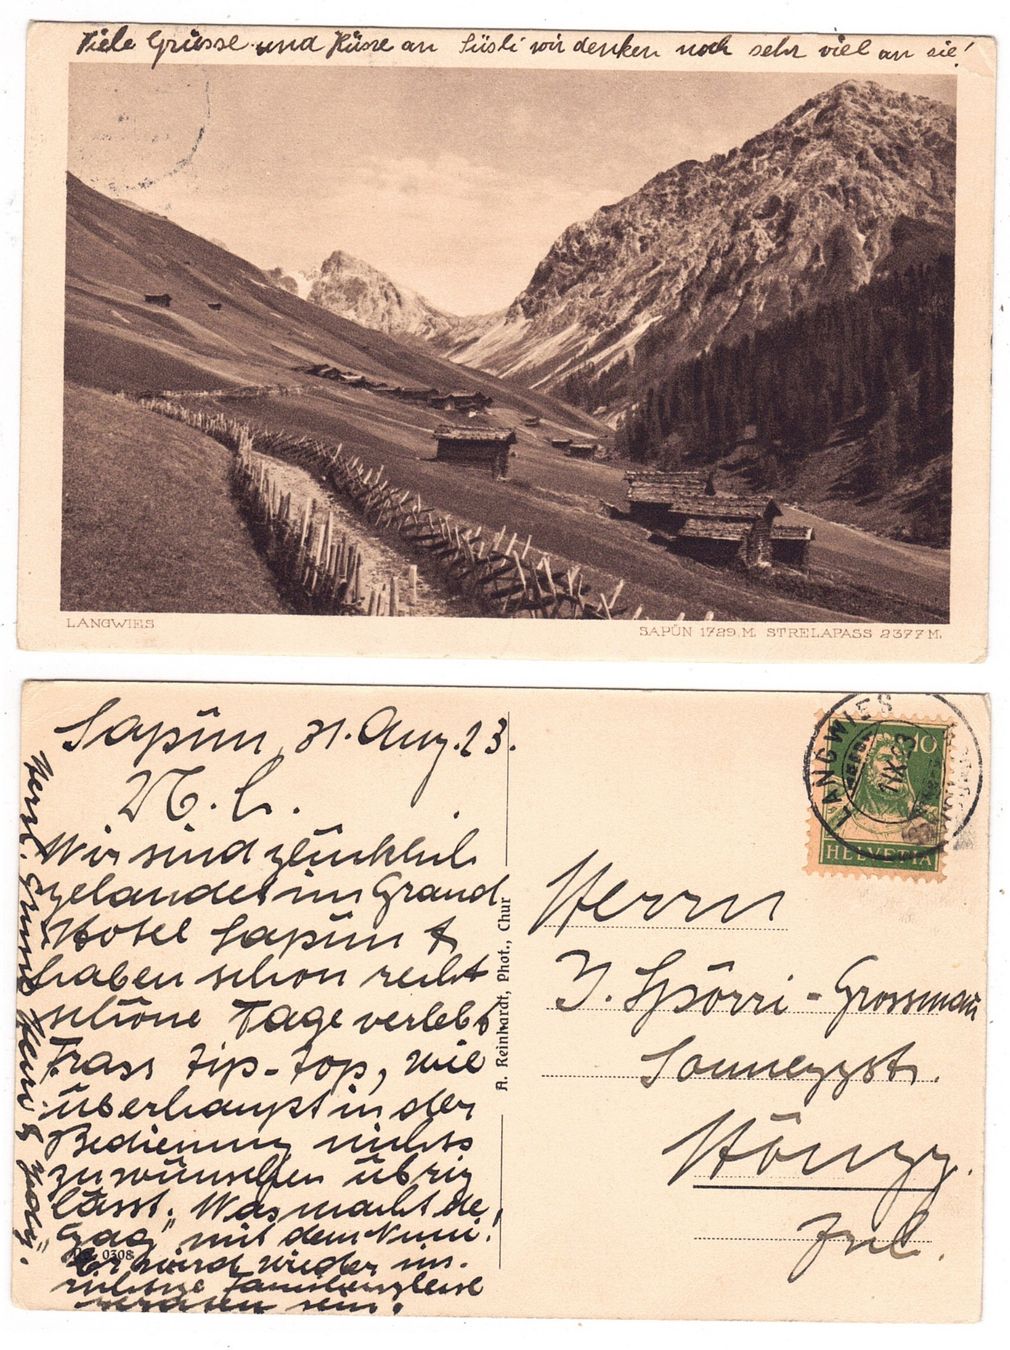 Viele Grüsse und Küsse an Süsli wir denken noch sehr viel an sie!
LANGWIES
SAPÜN 1729 M. STRELAPASS 2377 M.
Sapün, 31. Aug. 23.
M. L.
Wir sind glücklich
gelandet im Grand
Hotel Sapün &
haben schon recht
schöne Tage verlebt
Frass tip-top, wie
überhaupt in der
Bedienung nichts
zu wünschen übrig
lässt. Was macht de
"Gag" mit dem Nuni!
Er wird wieder ins
richtige Familiengleise
geraten sein.
Herzl. Grüsse Heini &
0308
A. Reinhardt, Phot., Chur
LANGWIES
1.IX.23
10
HELVETIA
Herrn
J. Spörri-Grossmann
Sonneggstr.
Höngg.
Zrch.